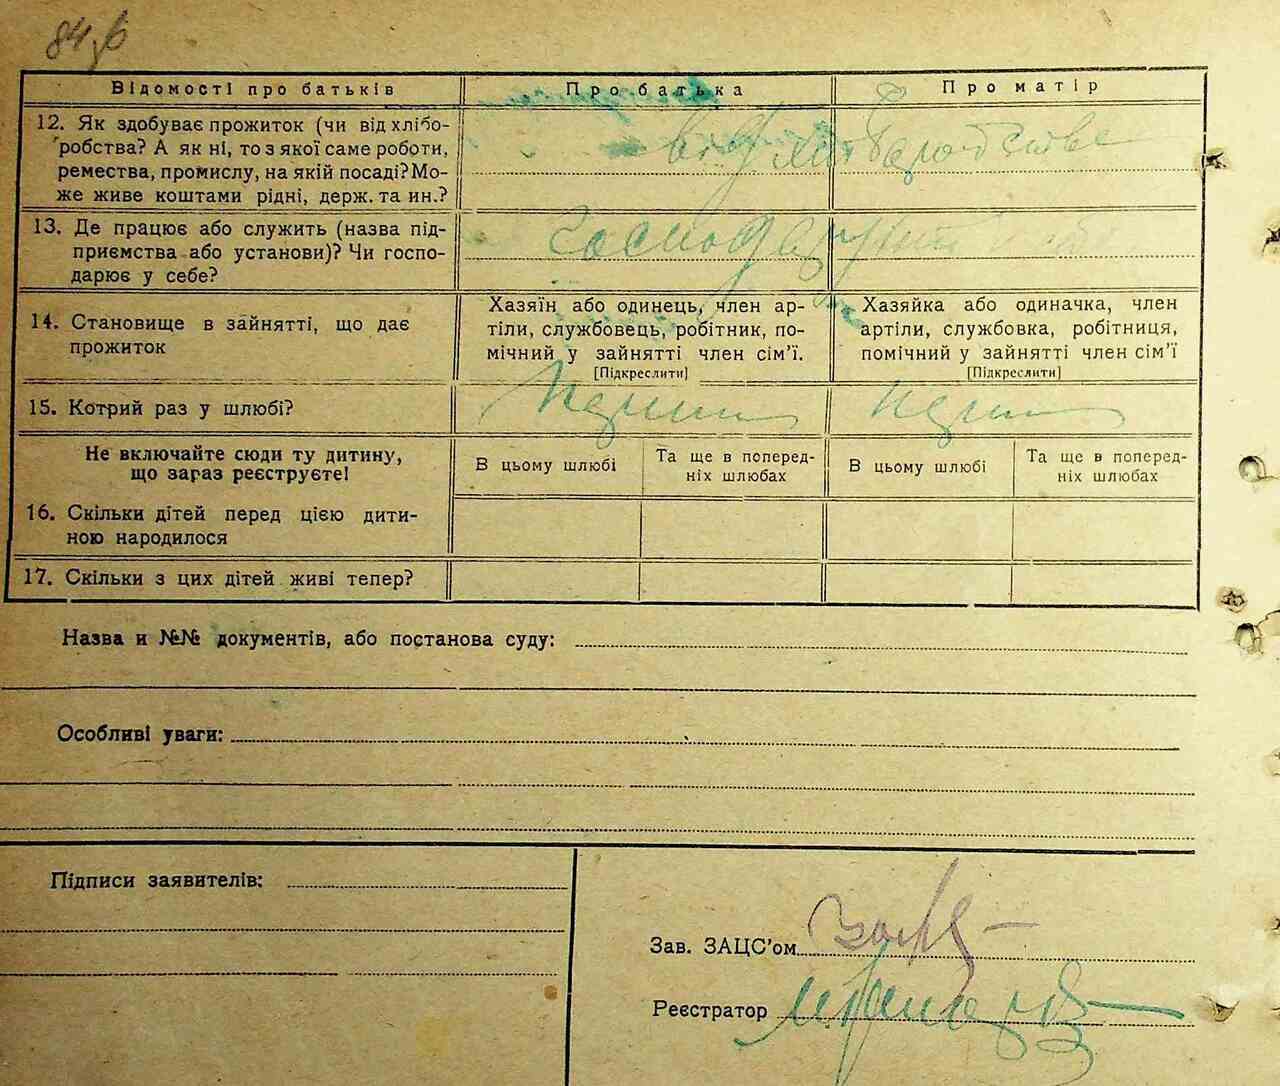 84 зв
Відомості про батьків
Про батька
Про матір
12. Як здобуває прожиток (чи від хлібо-
робства? А як ні, то з якої саме роботи,
ремества, промислу, на якій посаді? Мо-
же живе коштами рідні, держ. та ин.?
від хліборобства
13. Де працює або служить (назва під-
приємства або установи)? Чи госпо-
дарює у себе?
14. Становище в зайнятті, що дає
прожиток
Хазяїн або одинець, член ар-
тіли, службовець, робітник, по-
мічний у зайнятті член сім’ї.
[Підкреслити]
Хазяйка або одиначка, член
артіли, службовка, робітниця,
помічний у зайнятті член сім’ї
[Підкреслити]
15. Котрий раз у шлюбі?
Не включайте сюди ту дитину,
що зараз реєструєте!
В цьому шлюбі
Та ще в поперед-
ніх шлюбах
В цьому шлюбі
Та ще в поперед-
ніх шлюбах
16. Скільки дітей перед цією дити-
ною народилося
17. Скільки з цих дітей живі тепер?
Назва и №№ документів, або постанова суду:
Особливі уваги:
Підписи заявителів:
Зав. ЗАЦС’ом
Реєстратор